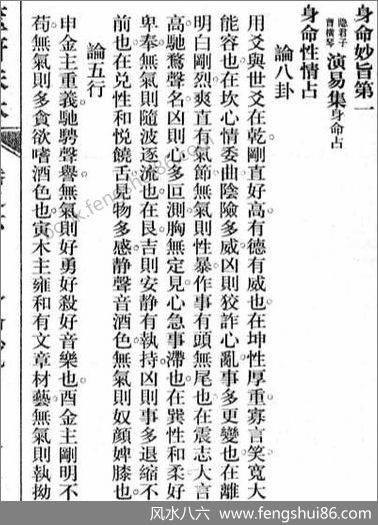 身命妙旨第一
隐君子
曹橫琴
演易集身命占
身命性情占
論八卦
用爻與世爻在乾剛直好高有德有威也在坤性厚重寡言笑寬大
能容也在坎心情委曲陰險多威凶則狡詐心亂事多更變也在離
明白剛烈爽直有氣節無氣則性暴作事有頭無尾也在震志大言
高馳騖聲名凶則心多叵測胸無定見心急事滯也在巽性和柔好
卑奉無氣則隨波逐流也在艮吉則安靜有執持凶則事多退縮不
前也在兌性和悅饒舌見物多感靜聲音酒色無氣則奴顔婢膝也
論五行
申金主重義馳騁聲譽無氣則好勇好殺好音樂也酉金主剛明不
苟無氣則多貪欲嗜酒色也寅木主雍和有文章材藝無氣則執拗
www.fengshui86.com
风水八六 - www.fengshui86.com